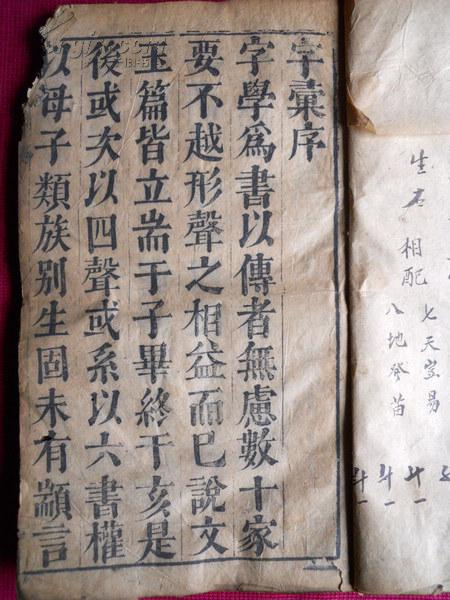 字彙序
字學爲書以傳者無慮數十家
要不越形聲之相益而已說文
玉篇皆立耑于子畢終于亥是
後或次以四聲或系以六書權
以母子類族别生固未有顓言
生右相配
七天宝易
八地癸苗